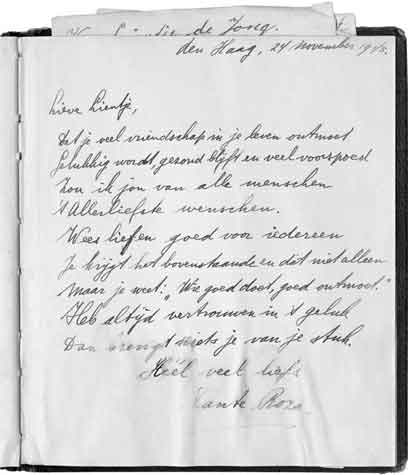 de Jong.
den Haag, 24 November 19
Lieve Lientje,
Dat je veel vriendschap in je leven ontmoet
Gelukkig wordt, gezond blijft en veel voorspoed
Zou ik jou van alle menschen
't Allerliefste wenschen.
Wees lief en goed voor iedereen
Je krijgt het bovenstaande en dat niet alleen
Maar je weet: "Wie goed doet, goed ontmoet."
Heb altijd vertrouwen in 't geluk
Dan brengt niets je van je stuk.
Héél veel liefs
Tante Roza